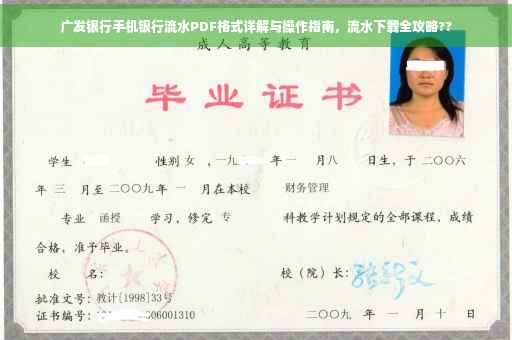 广发银行手机银行流水PDF格式详解与操作指南，流水下载全攻略??
成人高等教育
毕业证书
学生 性别 女 ，一九 年一 月八 日生，于二〇〇六
年 三 月至二〇〇九年 一 月在本校 财务管理
专业 函授 学习，修完 专 科教学计划规定的全部课程，成绩
合格，准予毕业。
校 名： 校（院）长：
批准文号：教计[1998]33号
证书编号： 06001310 二〇〇九 年 一 月 十 日